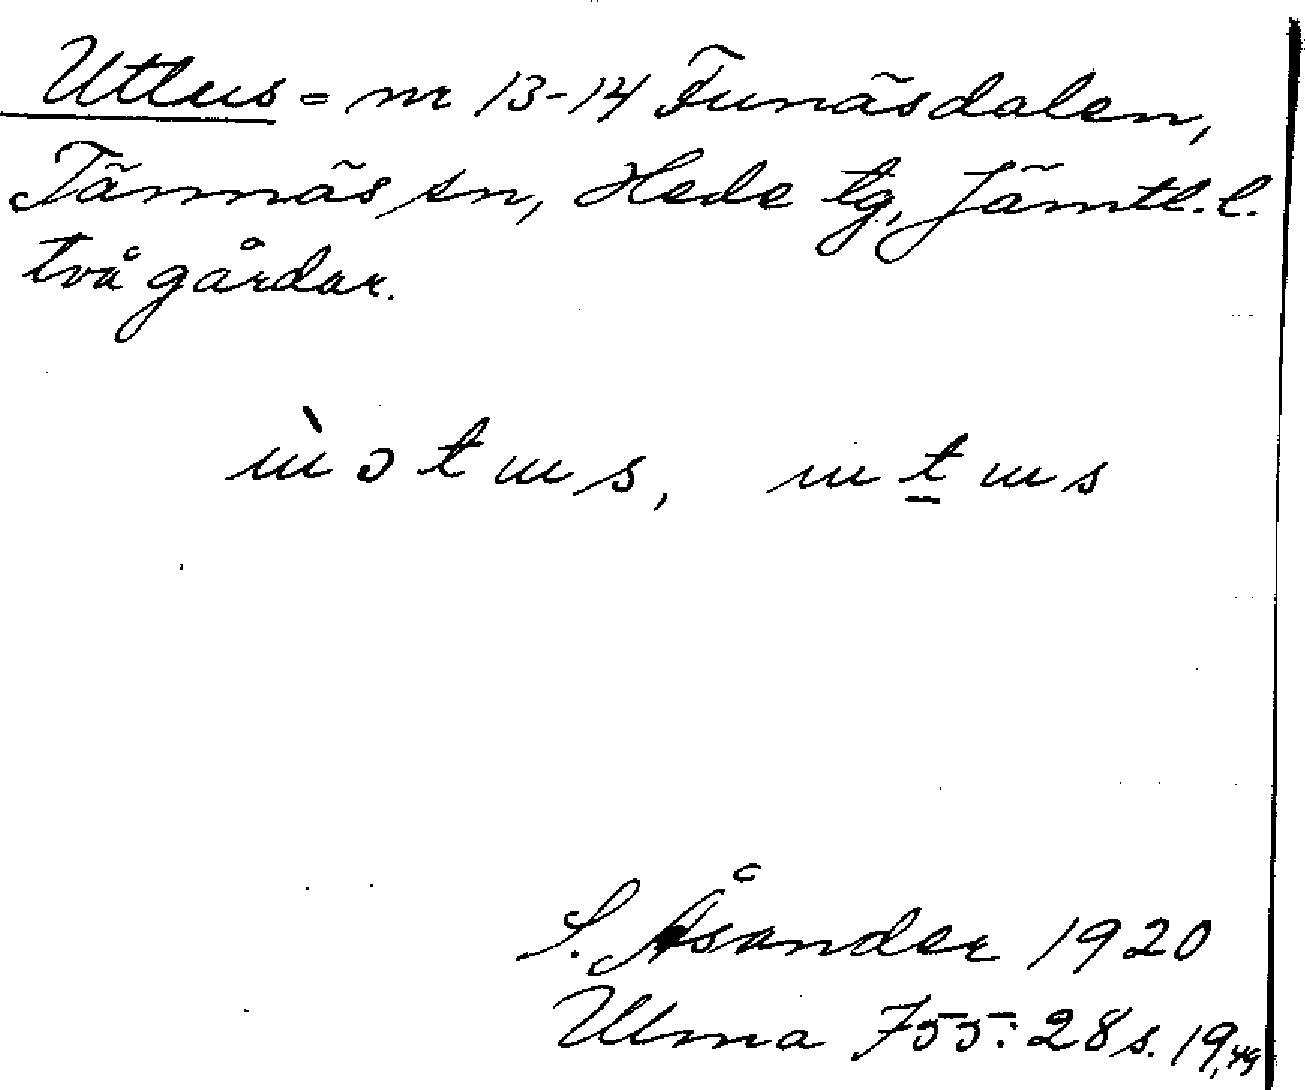 Utlus = nr 13-14 Funäsdalen,
Tännäs sn, Hede tg, Jämtl. l.
två gårdar.
ɯ̀ɔtɯs, ɯt̲ɯs
S. Åsander 1920
Ulma 755:28 s. 19, 49